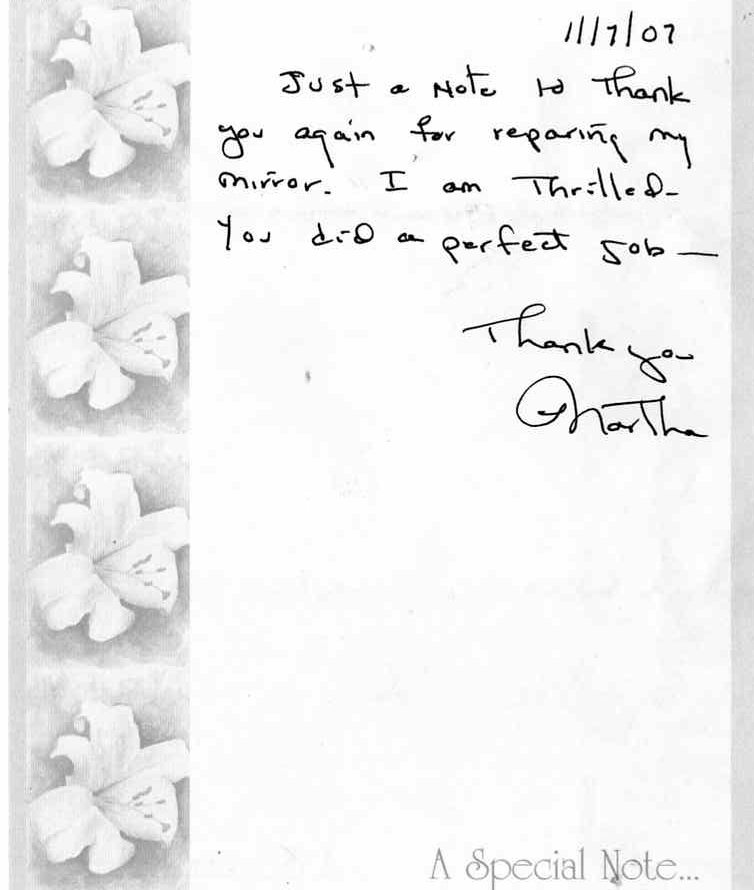 11/7/07
Just a Note to Thank
you again for reparing my
mirror. I am Thrilled-
You did a perfect Job —
Thank you
Martha
A Special Note...